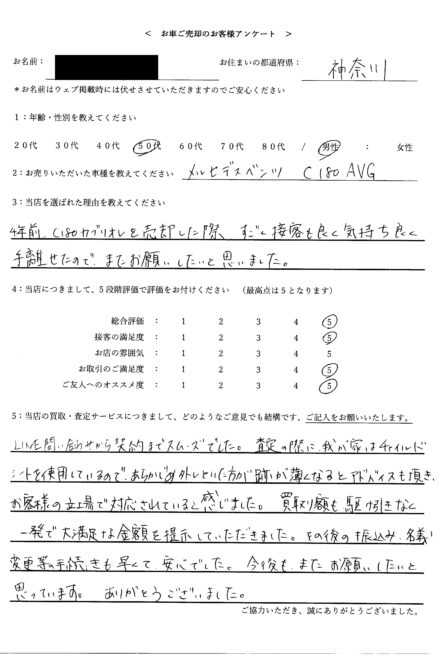 ＜　お車ご売却のお客様アンケート　＞
お名前：　お住まいの都道府県：　神奈川
＊お名前はウェブ掲載時には伏せさせていただきますのでご安心ください
1：年齢・性別を教えてください
20代　30代　40代　50代　60代　70代　80代　/　男性　：　女性
2：お売りいただいた車種を教えてください　メルセデスベンツ　C180 AVG
3：当店を選ばれた理由を教えてください
4年前、C180カブリオレを売却した際、すごく接客も良く気持ち良く
手離せたので、またお願いしたいと思いました。
4：当店につきまして、5段階評価で評価をお付けください　（最高点は5となります）
総合評価　：　1　2　3　4　5
接客の満足度　：　1　2　3　4　5
お店の雰囲気　：　1　2　3　4　5
お取引のご満足度　：　1　2　3　4　5
ご友人へのオススメ度　：　1　2　3　4　5
5：当店の買取・査定サービスにつきまして、どのようなご意見でも結構です、ご記入をお願いいたします。
LINE問い合わせから契約までスムーズでした。査定の際に、我が家はチャイルド
シートを使用しているので、あらかじめ外しといた方が跡が薄くなるとアドバイスも頂き、
お客様の立場で対応されていると感じました。買取り額も駆け引きなく
一発で大満足な金額を提示していただきました。その後の振込み、名義
変更等の手続きも早くて、安心でした。今後も、またお願いしたいと
思っています。ありがとうございました。
ご協力いただき、誠にありがとうございました。